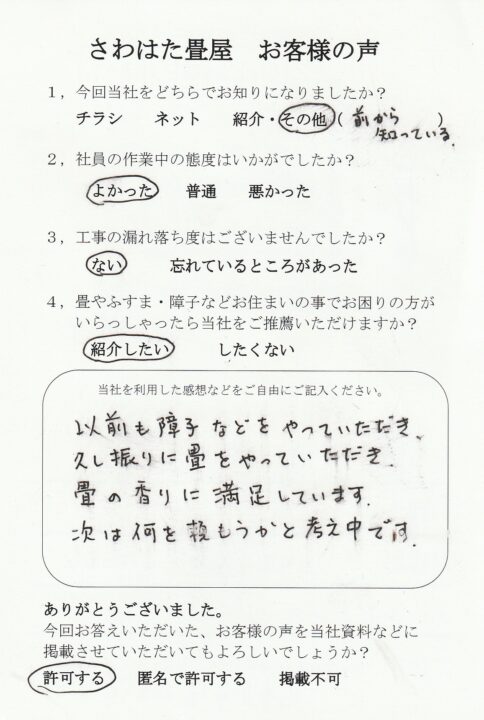 さわはた畳屋　お客様の声
１，今回当社をどちらでお知りになりましたか？
チラシ　ネット　紹介・その他（前から知っている。）
２，社員の作業中の態度はいかがでしたか？
よかった　普通　悪かった
３，工事の漏れ落ち度はございませんでしたか？
ない　忘れているところがあった
４，畳やふすま・障子などお住まいの事でお困りの方が
いらっしゃったら当社をご推薦いただけますか？
紹介したい　したくない
当社を利用した感想などをご自由にご記入ください。
以前も障子などをやっていただき、
久し振りに畳をやっていただき、
畳の香りに満足しています。
次は何を頼もうかと考え中です。
ありがとうございました。
今回お答えいただいた、お客様の声を当社資料などに
掲載させていただいてもよろしいでしょうか？
許可する　匿名で許可する　掲載不可